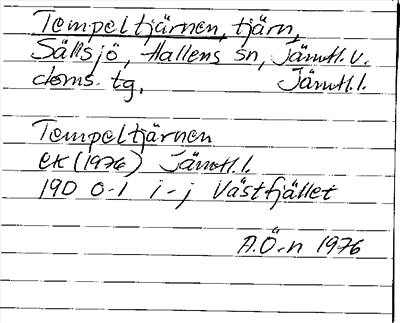 Tempeltjärnen, tjärn,
Sällsjö, Hallens sn, Jämtl. v.
doms. tg. Jämtl. l.
Tempeltjärnen
ek (1976) Jämtl. l.
19D 0-1 i-j Västfjället
A.Ö-n 1976